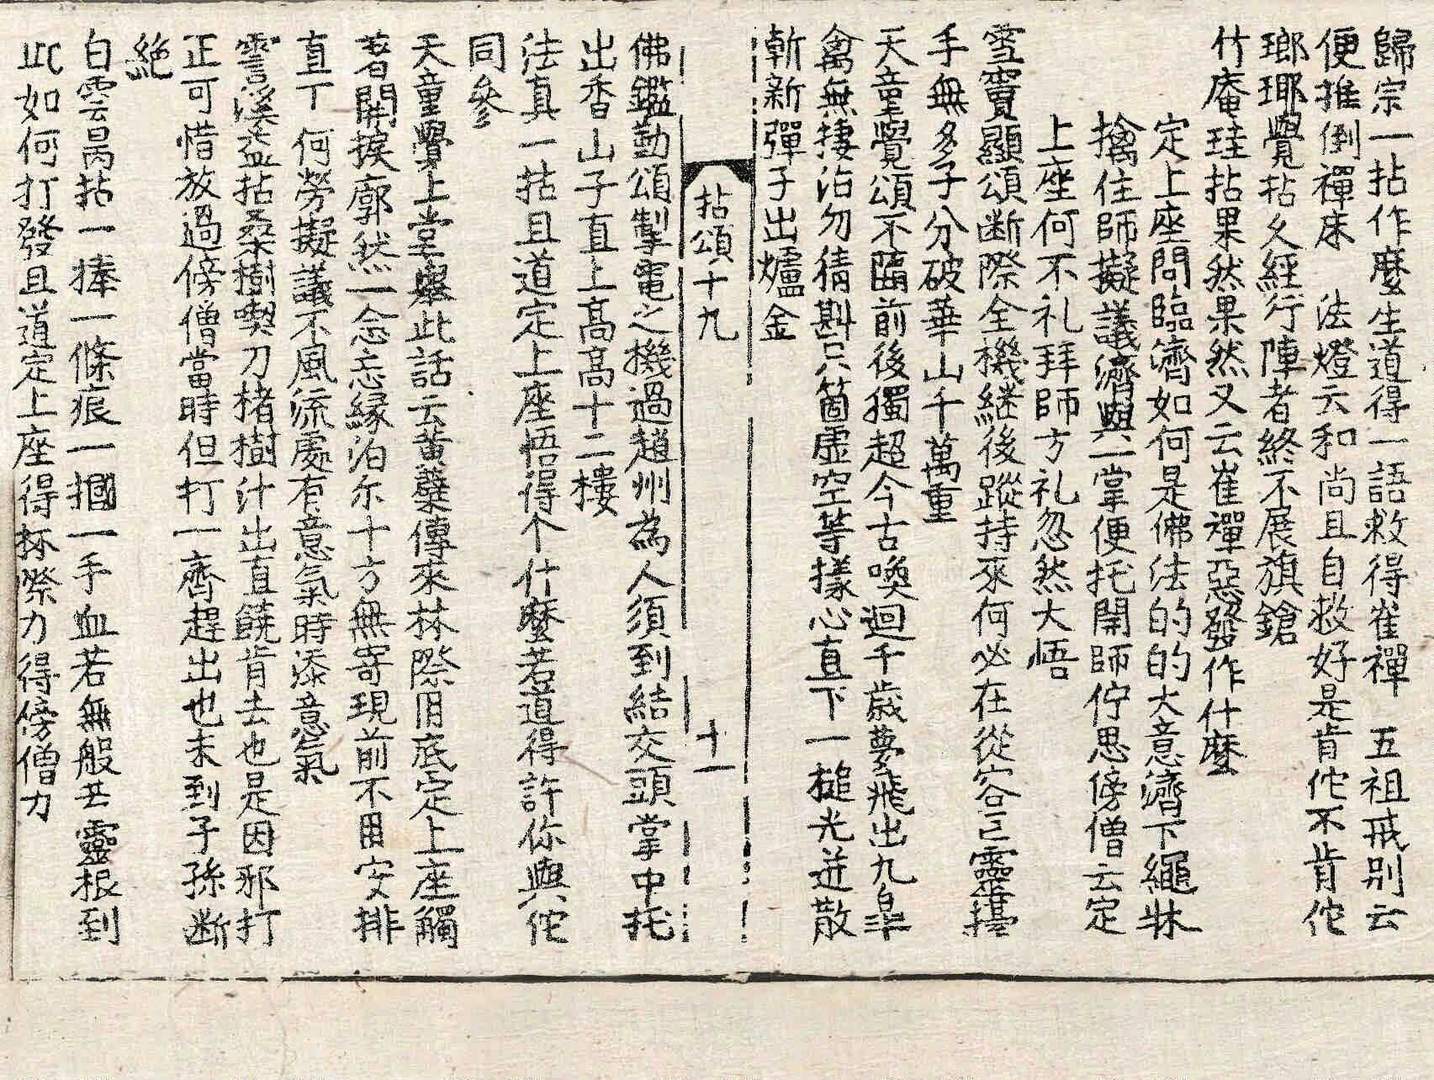 歸宗一拈作麽生道得一語救得崔禪　五祖戒别云
便推倒禪床　法燈云和尚且自救好是肯佗不肯佗
瑯琊覺拈久經行陣者終不展旗鎗
竹庵珪拈果然果然又云崔禪惡發作什麽
定上座問臨濟如何是佛法的的大意濟下繩牀
擒住師擬議濟與一掌便托開師佇思傍僧云定
上座何不礼拜師方礼忽然大悟
雪竇顯頌断際全機継後蹤持來何必在從容巨靈擡
手無多子分破華山千萬重
天童覺頌不萠前後獨超今古喚迴千歳夢飛出九皐
禽無捿泊勿猜斟只箇虚空等㨾心直下一槌光迸散
斬新彈子出爐金
拈頌十九　十一
佛鑑勤頌掣電之機過趙州為人須到結交頭掌中托
出香山子直上高高十二樓
法真一拈且道定上座悟得个什麽若道得許你與佗
同參
天童覺上堂舉此話云黄蘗傳來林際用底定上座觸
著開挨廓然一念忘縁泊尓十方無寄現前不用安排
直下何勞擬議不風流處有意氣時添意氣
霅溪益拈桑樹喫刀楮樹汁出直饒肯去也是因邪打
正可惜放過傍僧當時但打一齊趕出也未到子孫断
絶
白雲昺拈一捧一條痕一摑一手血若無般若靈根到
此如何打發且道定上座得林際力得傍僧力